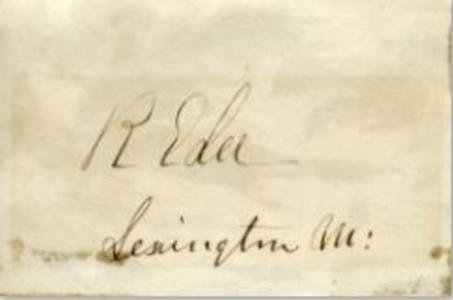 R Ede
Lexington M: